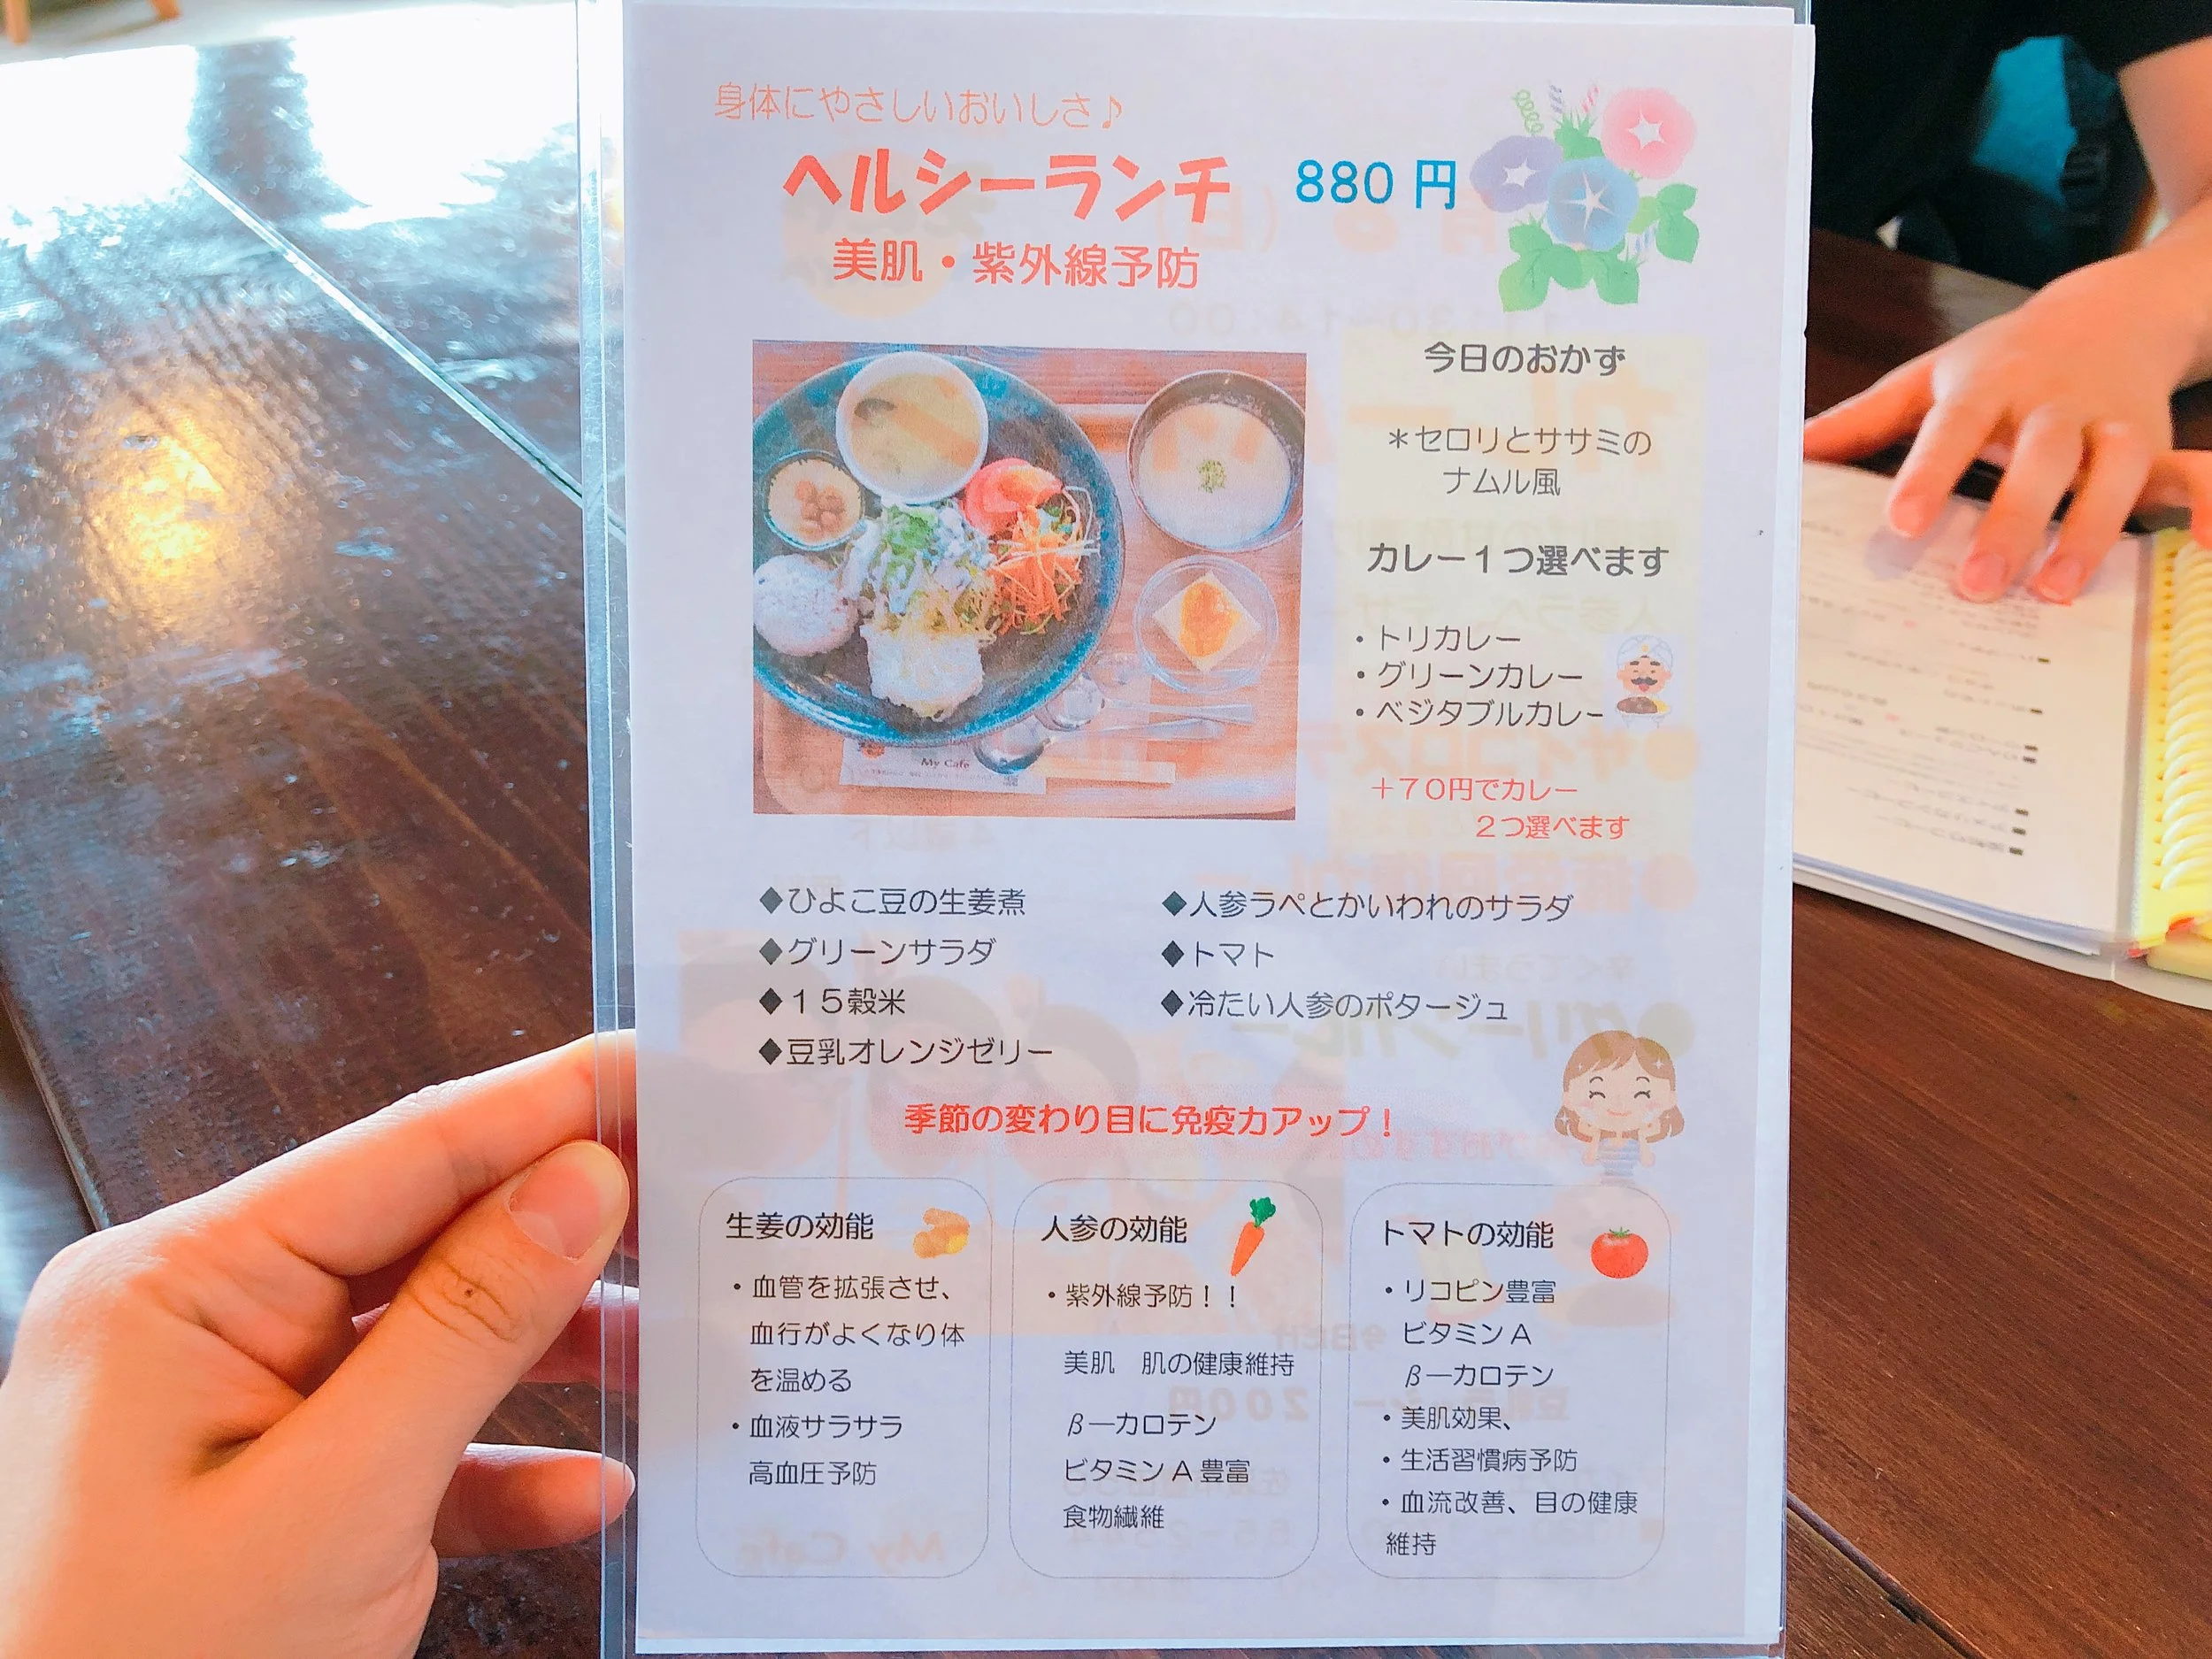 身体にやさしいおいしさ♪
ヘルシーランチ 880 円
美肌・紫外線予防
今日のおかず
＊セロリとササミの
ナムル風
カレー１つ選べます
・トリカレー
・グリーンカレー
・ベジタブルカレー
＋７０円でカレー
２つ選べます
My Cafe
◆ひよこ豆の生姜煮
◆グリーンサラダ
◆１５穀米
◆豆乳オレンジゼリー
◆人参ラペとかいわれのサラダ
◆トマト
◆冷たい人参のポタージュ
季節の変わり目に免疫力アップ！
生姜の効能
・血管を拡張させ、
血行がよくなり体
を温める
・血液サラサラ
高血圧予防
人参の効能
・紫外線予防！！
美肌　肌の健康維持
β―カロテン
ビタミン A 豊富
食物繊維
トマトの効能
・リコピン豊富
ビタミン A
β―カロテン
・美肌効果、
・生活習慣病予防
・血流改善、目の健康
維持